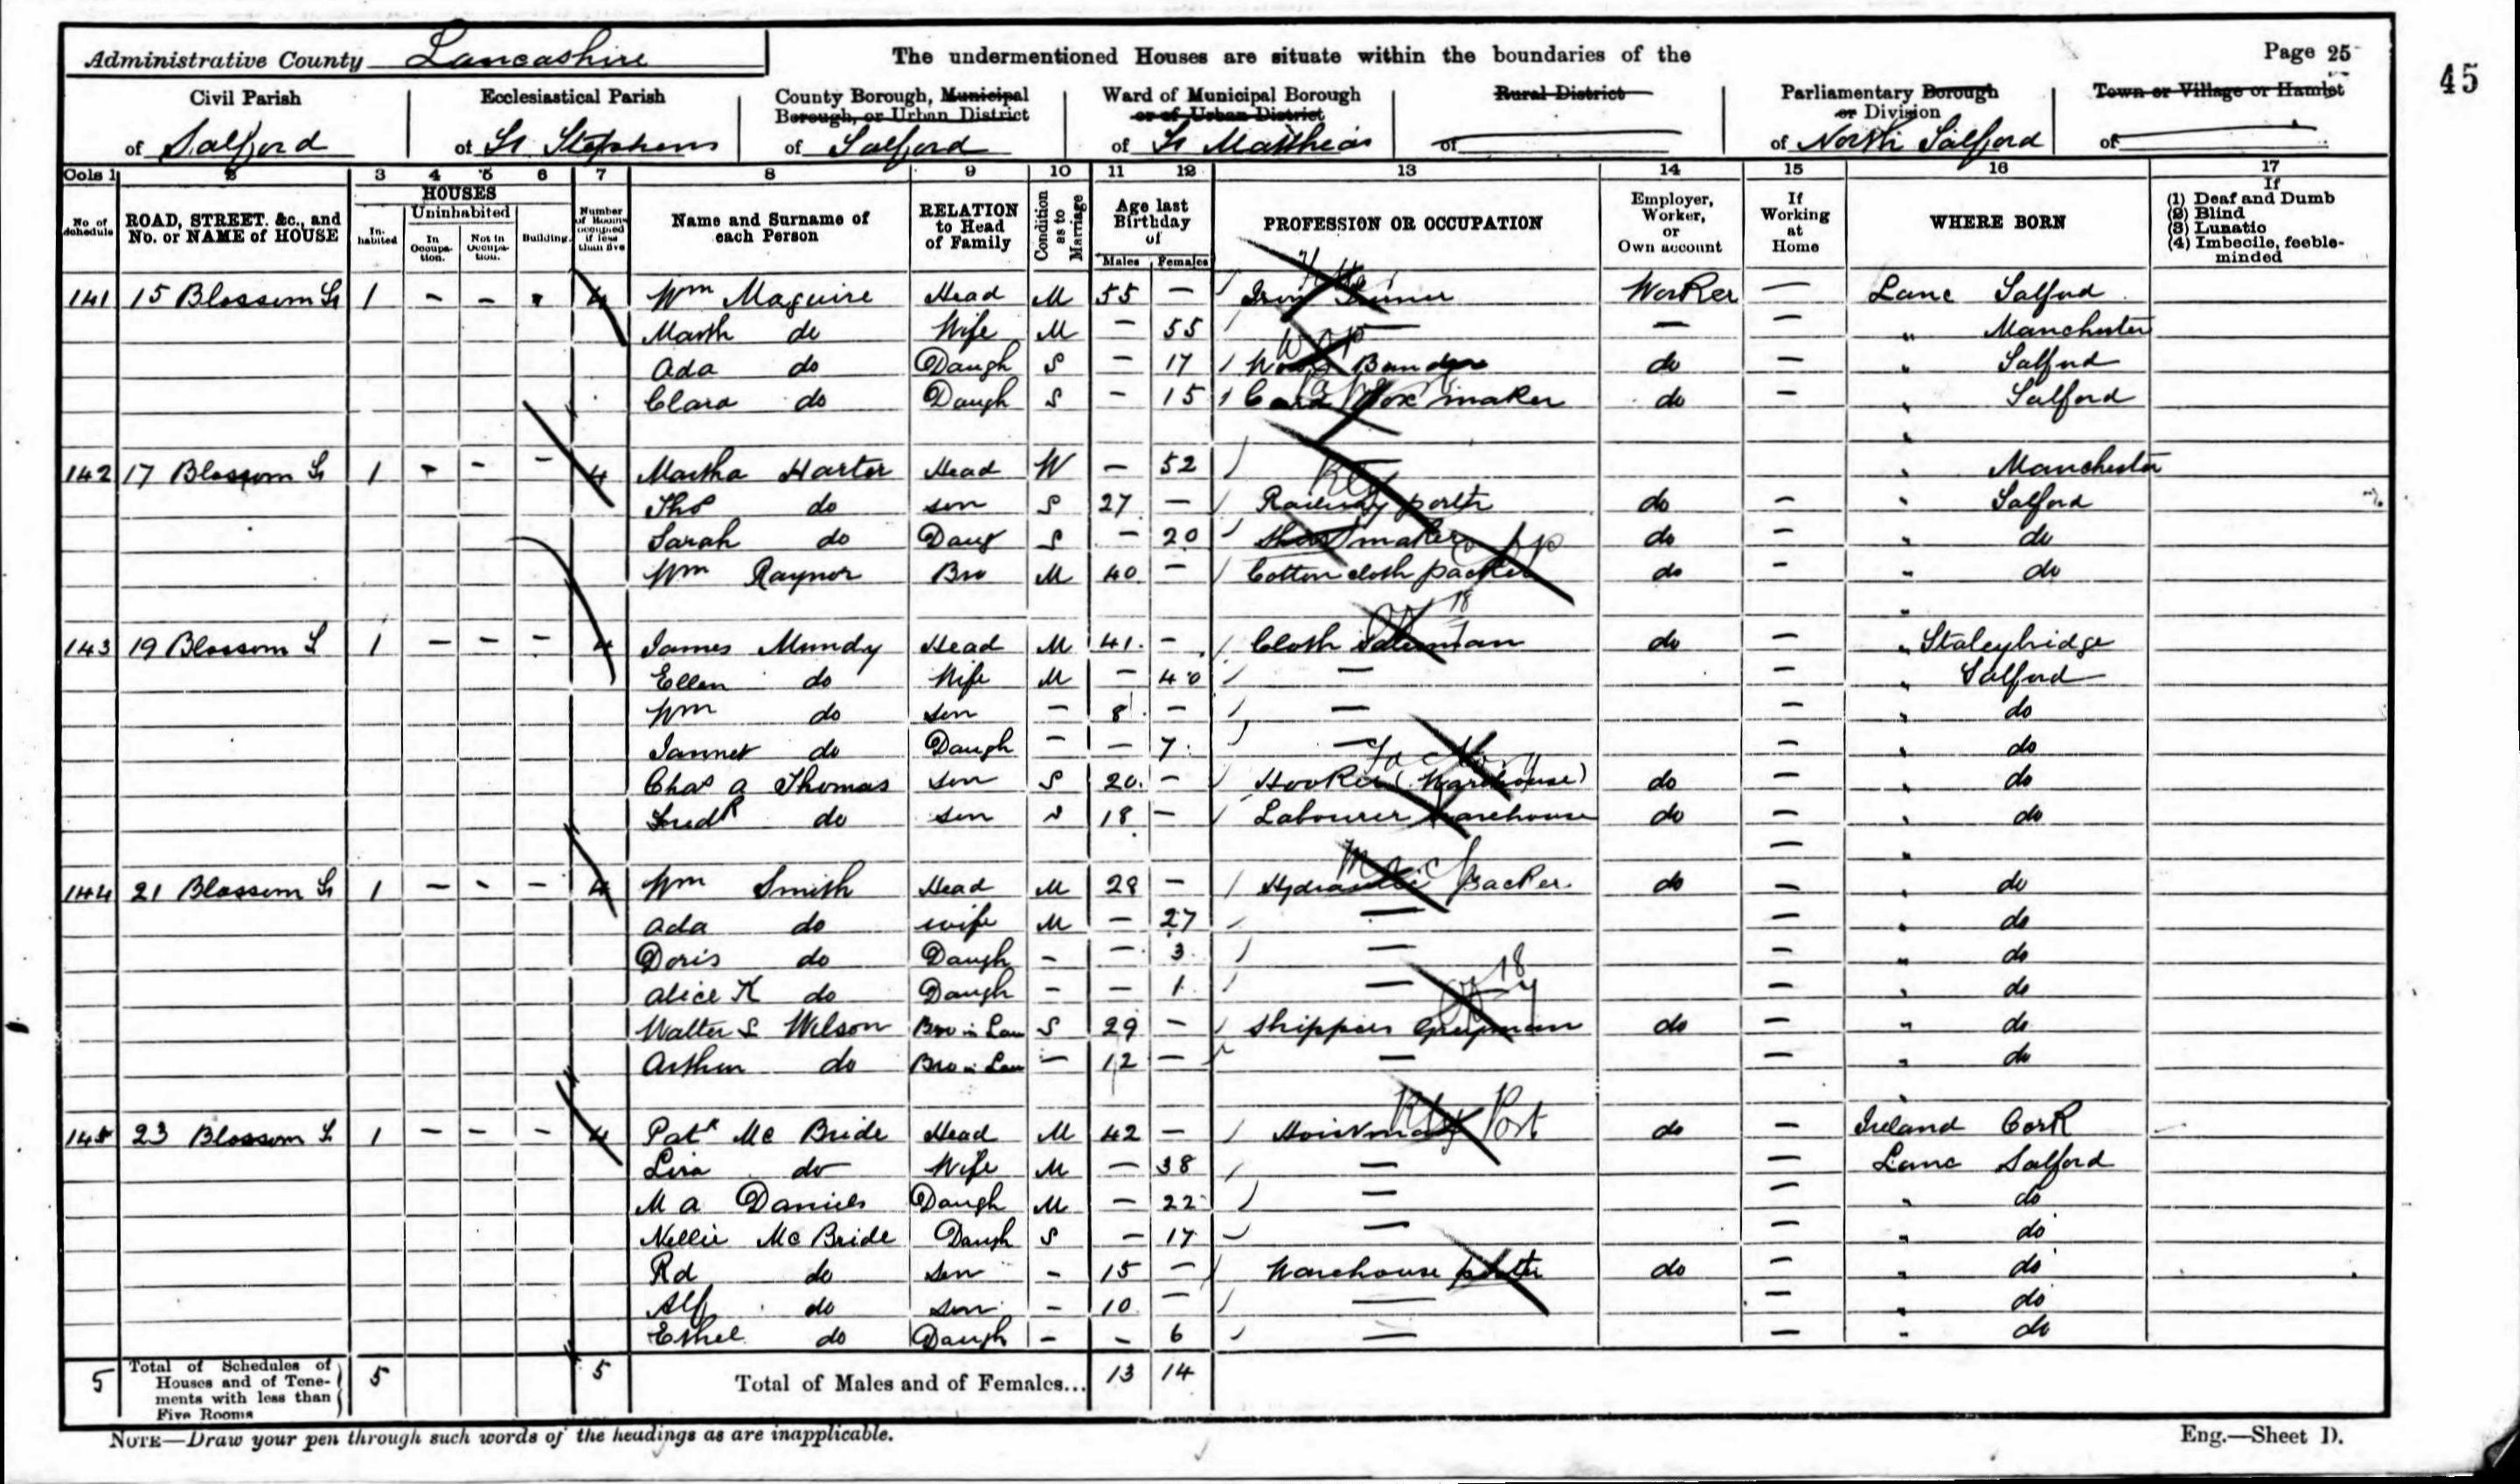 Administrative County Lancashire The undermentioned Houses are situate within the boundaries of the Page 25
45
Civil Parish Ecclesiastical Parish County Borough, Municipal Borough, or Urban District Ward of Municipal Borough or of Urban District Rural District Parliamentary Borough or Division Town or Village or Hamlet
of Salford of St Stephens of Salford of St Matthias of of North Salford of
Cols 1 2 3 4 5 6 7 8 9 10 11 12 13 14 15 16 17
No. of Schedule ROAD, STREET, &c., and No. or NAME of HOUSE HOUSES Inhabited Uninhabited In Occupation. Not in Occupation. Building. Number of Rooms occupied if less than five Name and Surname of each Person RELATION to Head of Family Condition as to Marriage Age last Birthday of Males Females PROFESSION OR OCCUPATION Employer, Worker, or Own account If Working at Home WHERE BORN If (1) Deaf and Dumb (2) Blind (3) Lunatic (4) Imbecile, feeble-minded
141 15 Blossom St 1 - - - 4 Wm Maguire Head M 55 - Iron Worker — Lanc Salford
Marth do Wife M - 55 — — " Manchester
Ada do Daugh S - 17 do — " Salford
Clara do Daugh S - 15 Card Box maker do — " Salford
142 17 Blossom St 1 - - - 4 Martha Harter Head W - 52 " Manchester
Thos do son S 27 - Rly Railway porth do — " Salford
Sarah do Daug S - 20 maker do — " do
Wm Raynor Bro M 40 - Cotton cloth packer do — " do
143 19 Blossom S 1 - - - 4 James Mundy Head M 41 - Cloth Salesman 18 do — " Staleybridge
Ellen do Wife M - 40 — — " Salford
Wm do son - 8 - — — " do
Jannet do Daugh - - 7 — — " do
Chas A Thomas son S 20 - Factory Hooker (Warehouse) do — " do
Fredk do son S 18 - Labourer Warehouse do — " do
144 21 Blossom St 1 - - - 4 Wm Smith Head M 28 - Hydraulic Packer do — " do
Ada do wife M - 27 — — " do
Doris do Daugh - - 3 — — " do
Alice K do Daugh - - 1 — — " do
Walter S Wilson Bro in Law S 29 - Shippers 18 do — " do
Arthur do Bro in Law - 12 - — — " do
145 23 Blossom S 1 - - - 4 Patk Mc Bride Head M 42 - Hoistman Port do — Ireland Cork
Liza do Wife M - 38 — — Lanc Salford
M A Daniels Daugh M - 22 — — " do
Nellie Mc Bride Daugh S - 17 — — " do
Rd do son - 15 - Warehouse porter do — " do
Alf do son - 10 - — — " do
Ethel do Daugh - - 6 — — " do
5 Total of Schedules of Houses and of Tenements with less than Five Rooms 5 5 Total of Males and of Females... 13 14
NOTE—Draw your pen through such words of the headings as are inapplicable. Eng.—Sheet D.